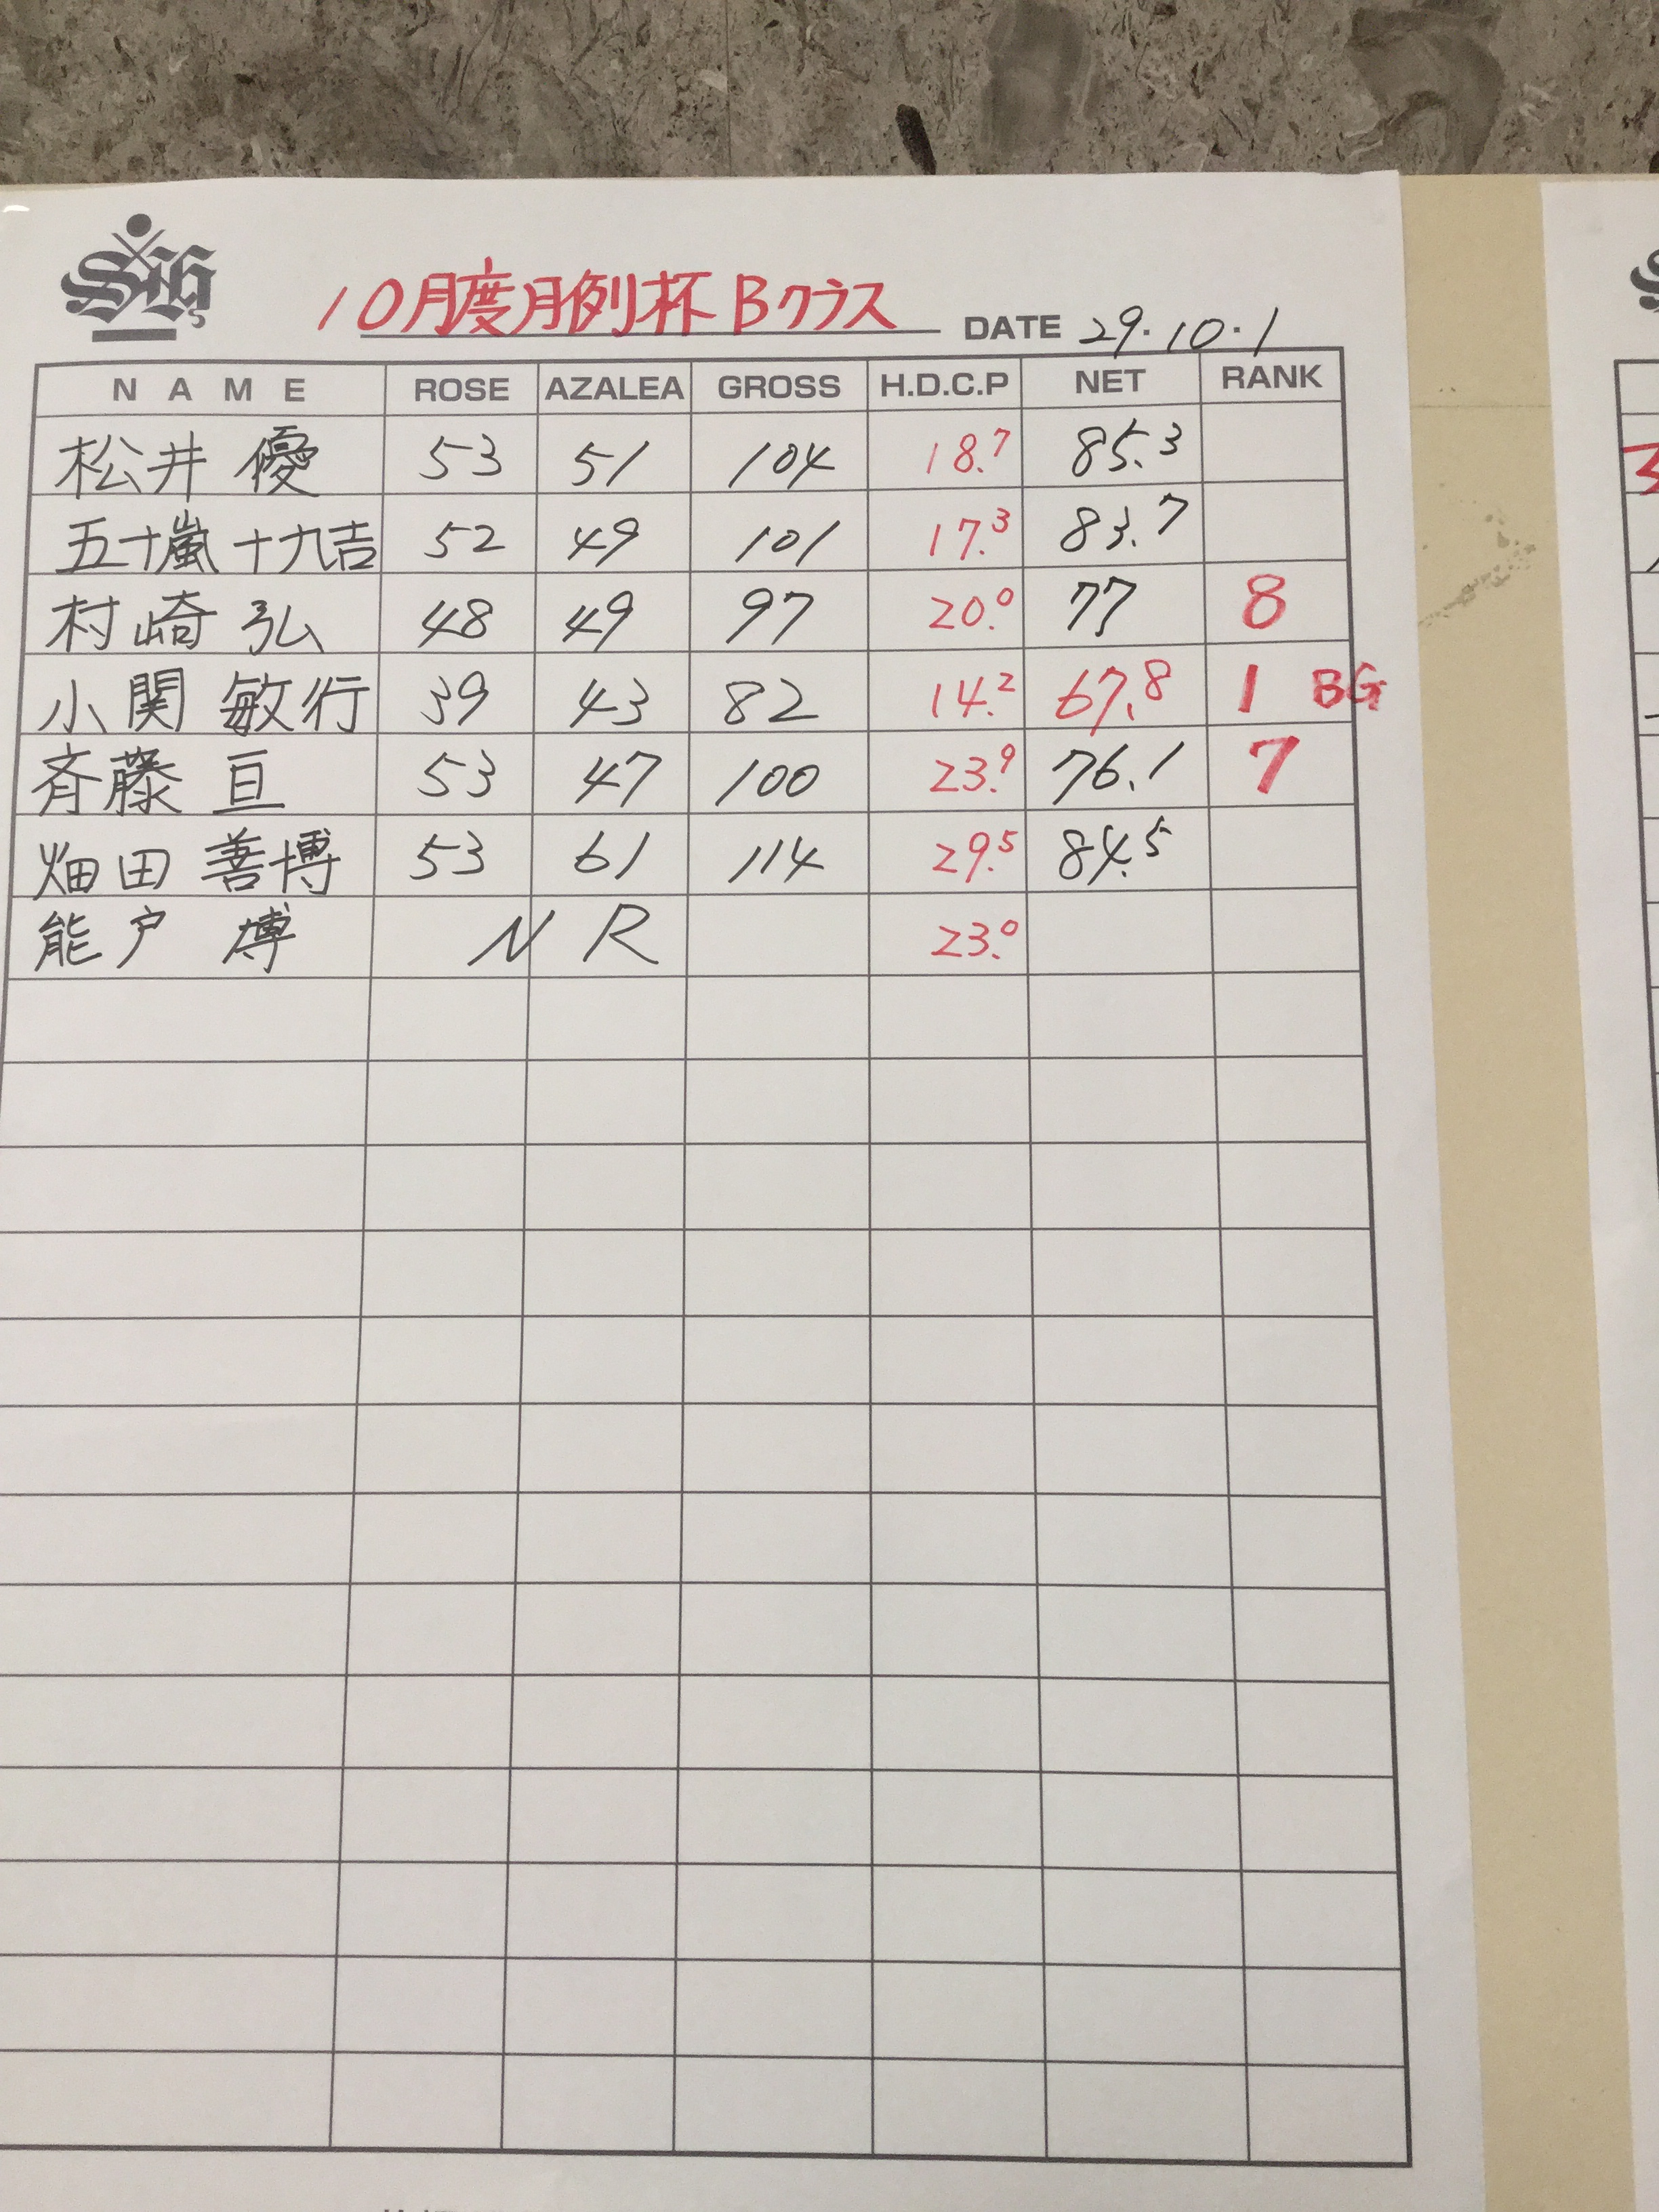 10月度月例杯 Bクラス DATE 29.10.1
NAME ROSE AZALEA GROSS H.D.C.P NET RANK
松井 優 53 51 104 18.7 85.3
五十嵐 十九吉 52 49 101 17.3 83.7
村崎 弘 48 49 97 20.0 77 8
小関 敏行 39 43 82 14.2 67.8 1 BG
斉藤 亘 53 47 100 23.9 76.1 7
畑田 善博 53 61 114 29.5 84.5
能戸 博 NR 23.0